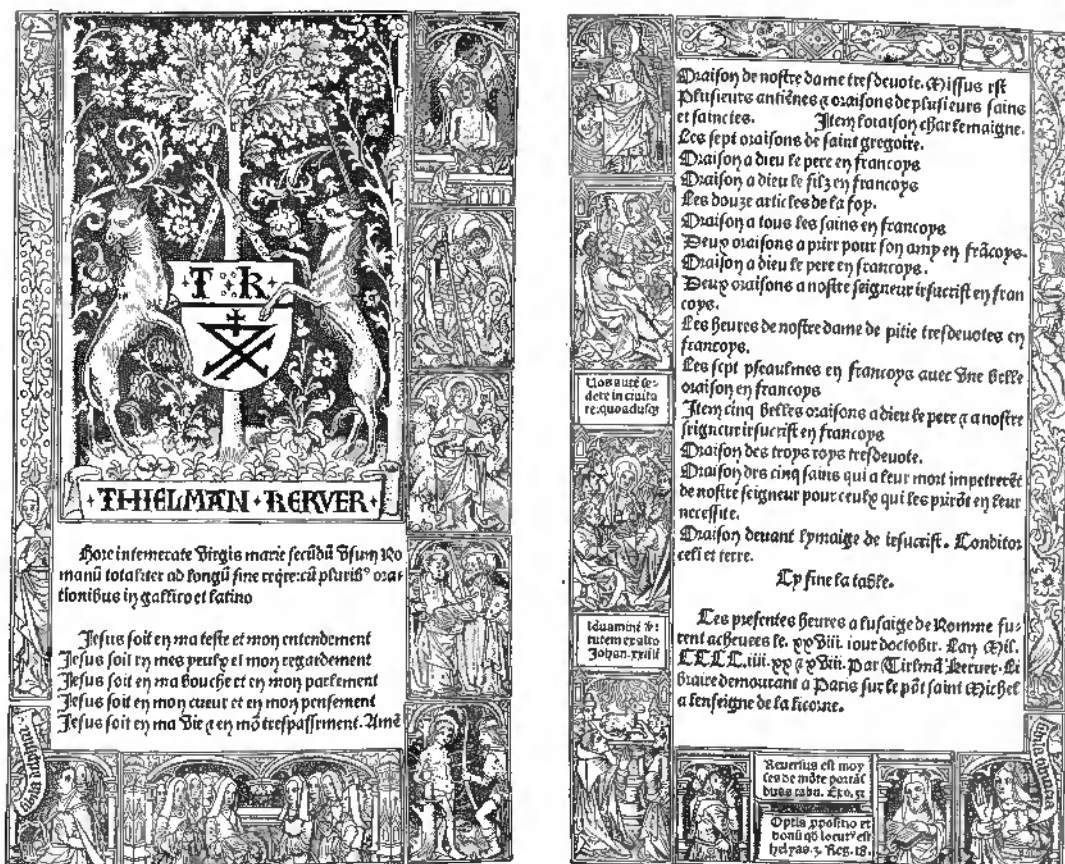 T R
THIELMAN KERVER
Hore intemerate Virgis marie secūdū Vsum Ro
manū totaliter ad longū sine reqire: cū plurib⁹ ora-
tionibus in gallico et latino
Jesus soit en ma teste et mon entendement
Jesus soit en mes yeulx et mon regardement
Jesus soit en ma bouche et en mon parlement
Jesus soit en mon cueur et en mon pensement
Jesus soit en ma vie ⁊ en mō trespassement. Amē
Oraison de nostre dame tresdevote. Missus est
Plusieurs antiēnes ⁊ oraisons de plusieurs sains
et sainctes. Item loraison charlemaigne.
Les sept oraisons de saint gregoire.
Oraison a dieu le pere en francoys
Oraison a dieu le filz en francoys
Les douze articles de la foy.
Oraison a tous les sains en francoys
Deux oraisons a prier pour son amy en frācoys.
Oraison a dieu le pere en francoys.
Deux oraisons a nostre seigneur iesucrist en fran
coys.
Les heures de nostre dame de pitie tresdevotes en
francoys.
Les sept pseaulmes en francoys avec vne belle
oraison en francoys
Item cinq belles oraisons a dieu le pere ⁊ a nostre
seigneur iesucrist en francoys
Oraison des troys roys tresdevote.
Oraison des cinq sains qui a leur mort impetrerēt
de nostre seigneur pour ceulx qui les prirōt en leur
necessite.
Oraison devant lymaige de iesucrist. Conditor
celi et terre.
Cy fine la table.
Les presentes heures a lusaige de Romme fu-
rent achevees le. xxviii. iour doctobre. Lan Mil.
CCCC.iiii.xx ⁊ xviii. Par Tielmā Kerver. Li
braire demourant a Paris sur le pōt saint Michel
a lenseigne de la licorne.
Vos autē se-
dete in civita
te: quoadusq̄
iduamini vir
tutem ex alto
Reversus est moy
ses de mōte portās
duas tabu. Exo. 32
et
bonū qd locut⁹ est
helyas. 3. Reg. 18.